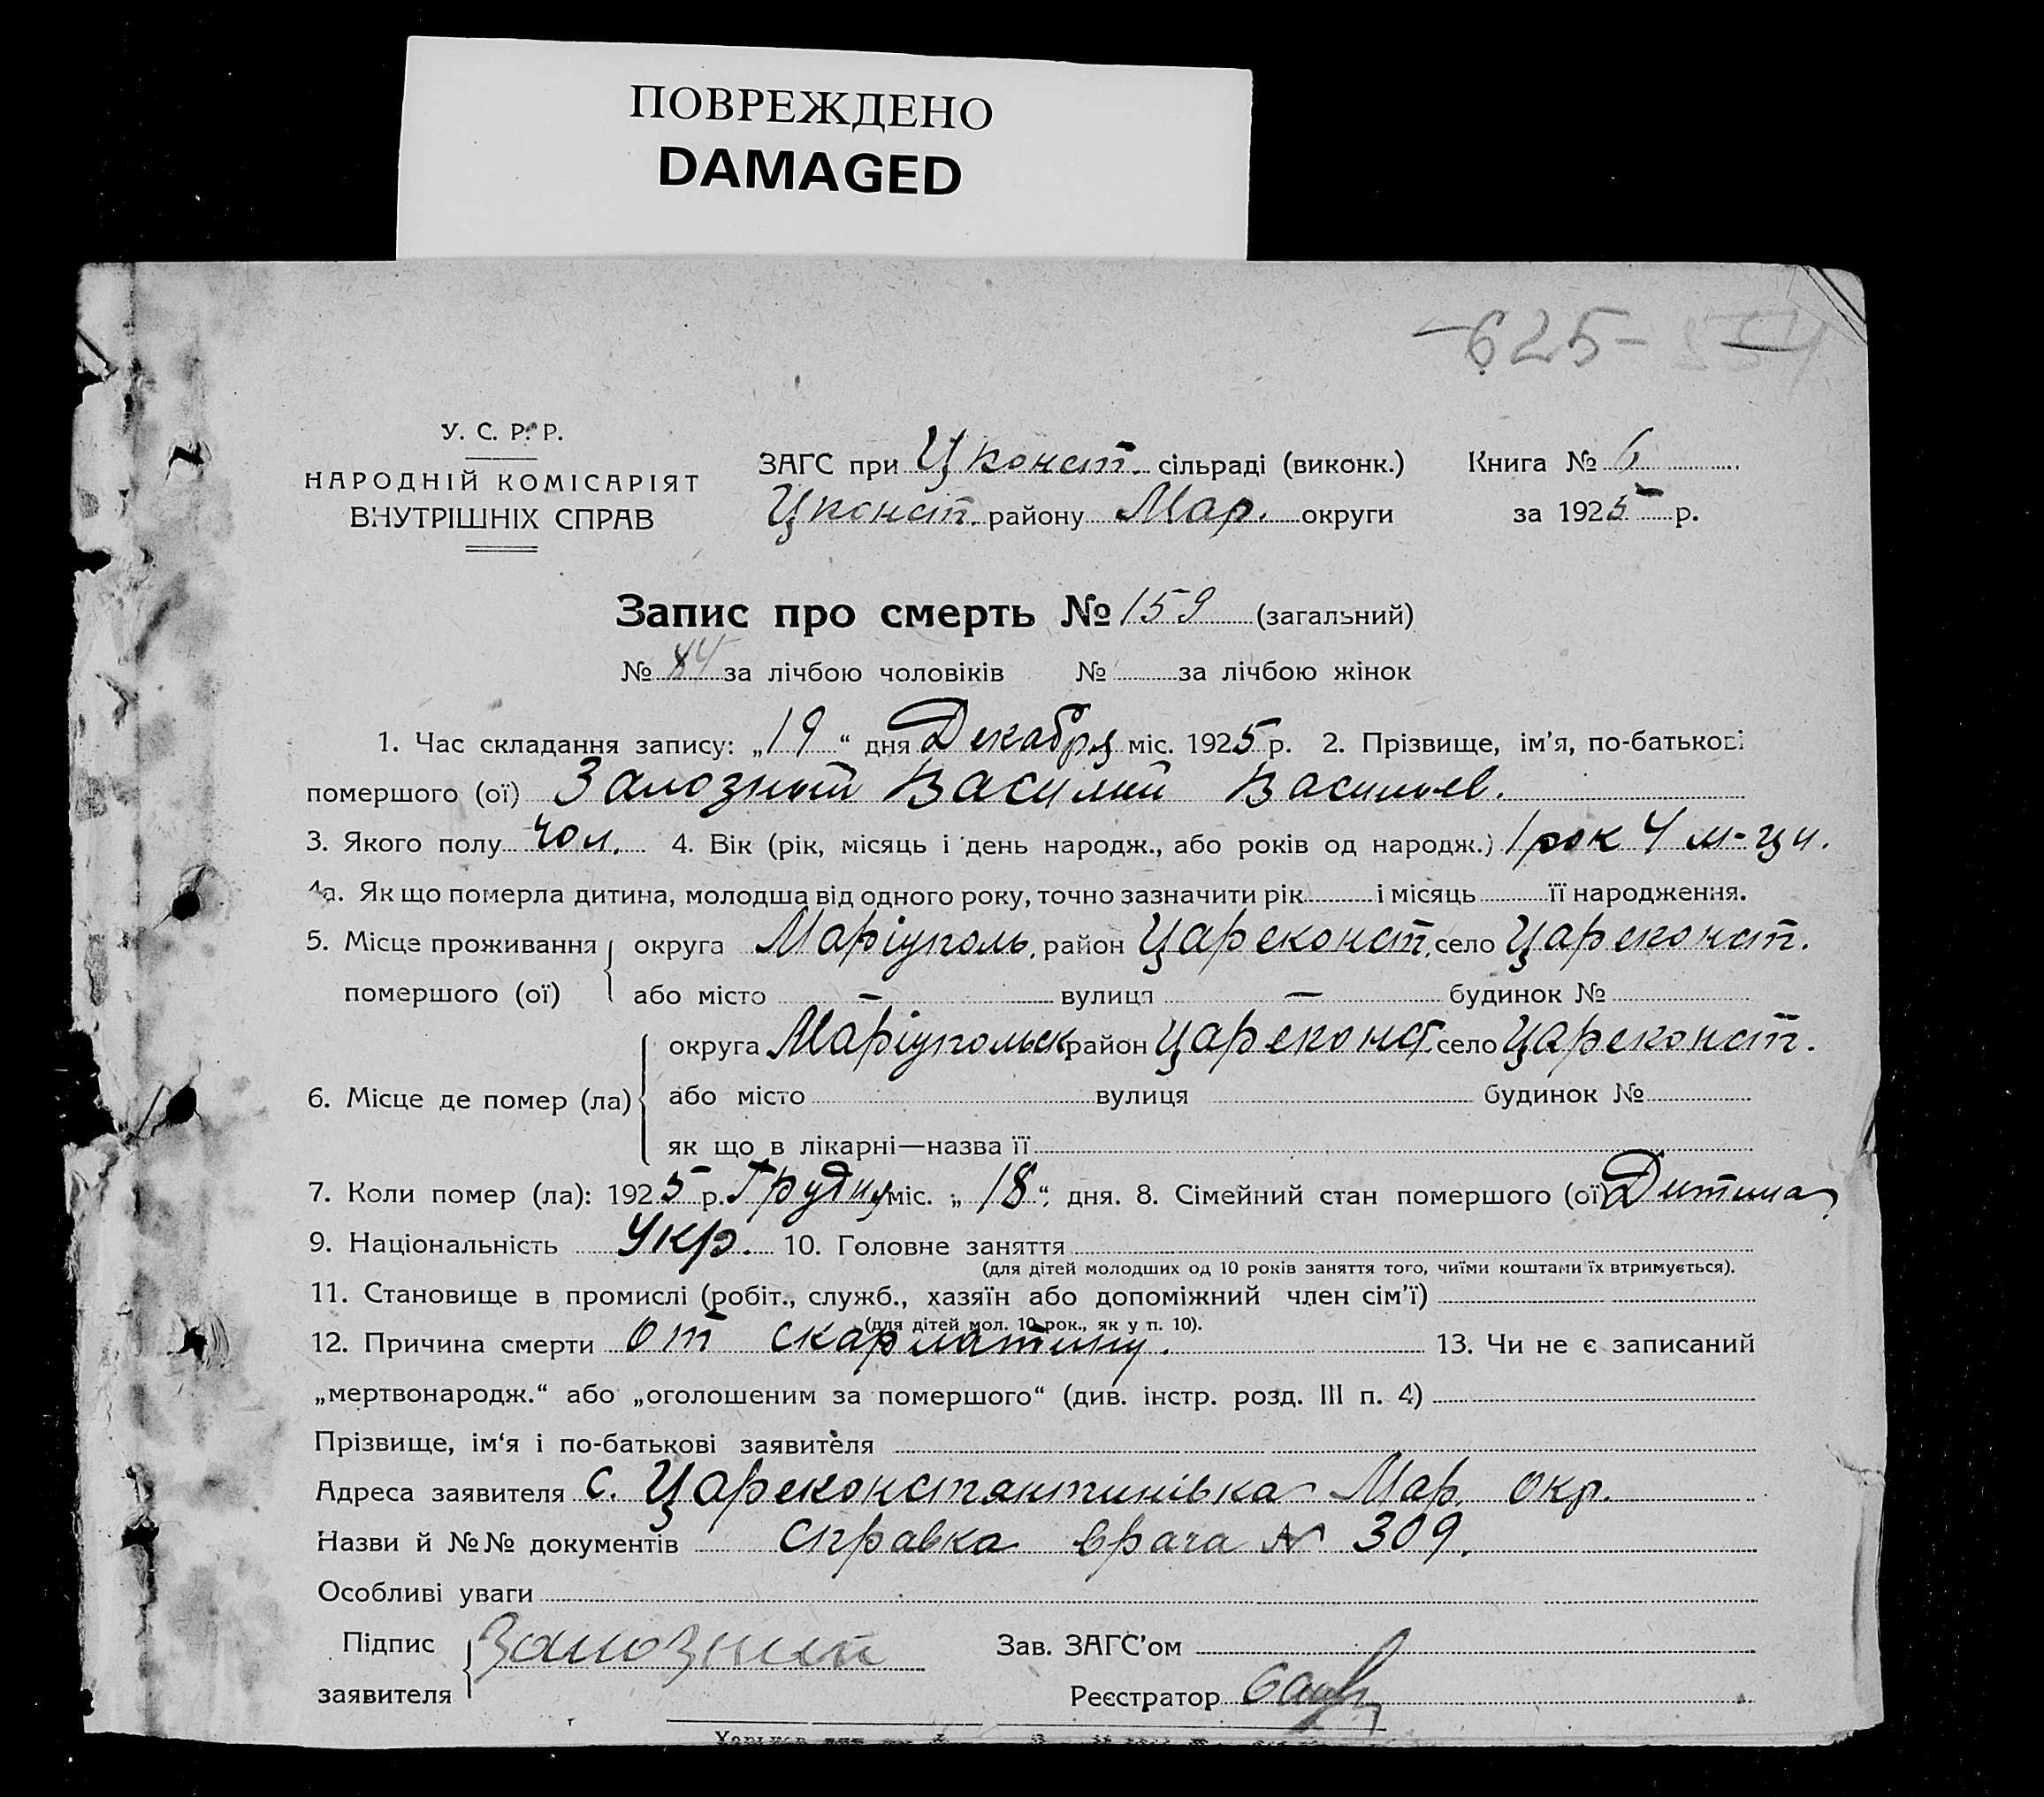 ПОВРЕЖДЕНО
DAMAGED
—625—
У. С. Р. Р.
НАРОДНІЙ КОМІСАРІЯТ
ВНУТРІШНІХ СПРАВ
ЗАГС при Цконст. сільраді (виконк.)
Цконст. району Мар. округи
Книга № 6
за 1925 р.
Запис про смерть № 159 (загальний)
№ 84 за лічбою чоловіків № за лічбою жінок
1. Час складання запису: „19“ дня Декабря міс. 1925 р. 2. Прізвище, ім'я, по-батькові
помершого (ої) Залозный Василий Васильев.
3. Якого полу чол. 4. Вік (рік, місяць і день народж., або років од народж.) 1 рок 4 м-ци.
4а. Як що померла дитина, молодша від одного року, точно зазначити рік і місяць її народження.
5. Місце проживання округа Маріуполь, район Цареконст. село Цареконст.
помершого (ої) або місто — вулиця — будинок №
округа Маріупольск район Цареконст. село Цареконст.
6. Місце де помер (ла) або місто вулиця будинок №
як що в лікарні—назва її
7. Коли помер (ла): 1925 р. Грудня міс. „18“ дня. 8. Сімейний стан помершого (ої) Дитина
9. Національність Укр. 10. Головне заняття
(для дітей молодших од 10 років заняття того, чиїми коштами їх втримується).
11. Становище в промислі (робіт., служб., хазяїн або допоміжний член сім'ї)
(для дітей мол. 10 рок., як у п. 10).
12. Причина смерти от скарлатини. 13. Чи не є записаний
„мертвонародж.“ або „оголошеним за помершого“ (див. інстр. розд. III п. 4)
Прізвище, ім'я і по-батькові заявителя
Адреса заявителя с. Цареконстантинівка Мар. окр.
Назви й №№ документів справка врача № 309.
Особливі уваги
Підпис
заявителя Залозний
Зав. ЗАГС'ом
Реєстратор